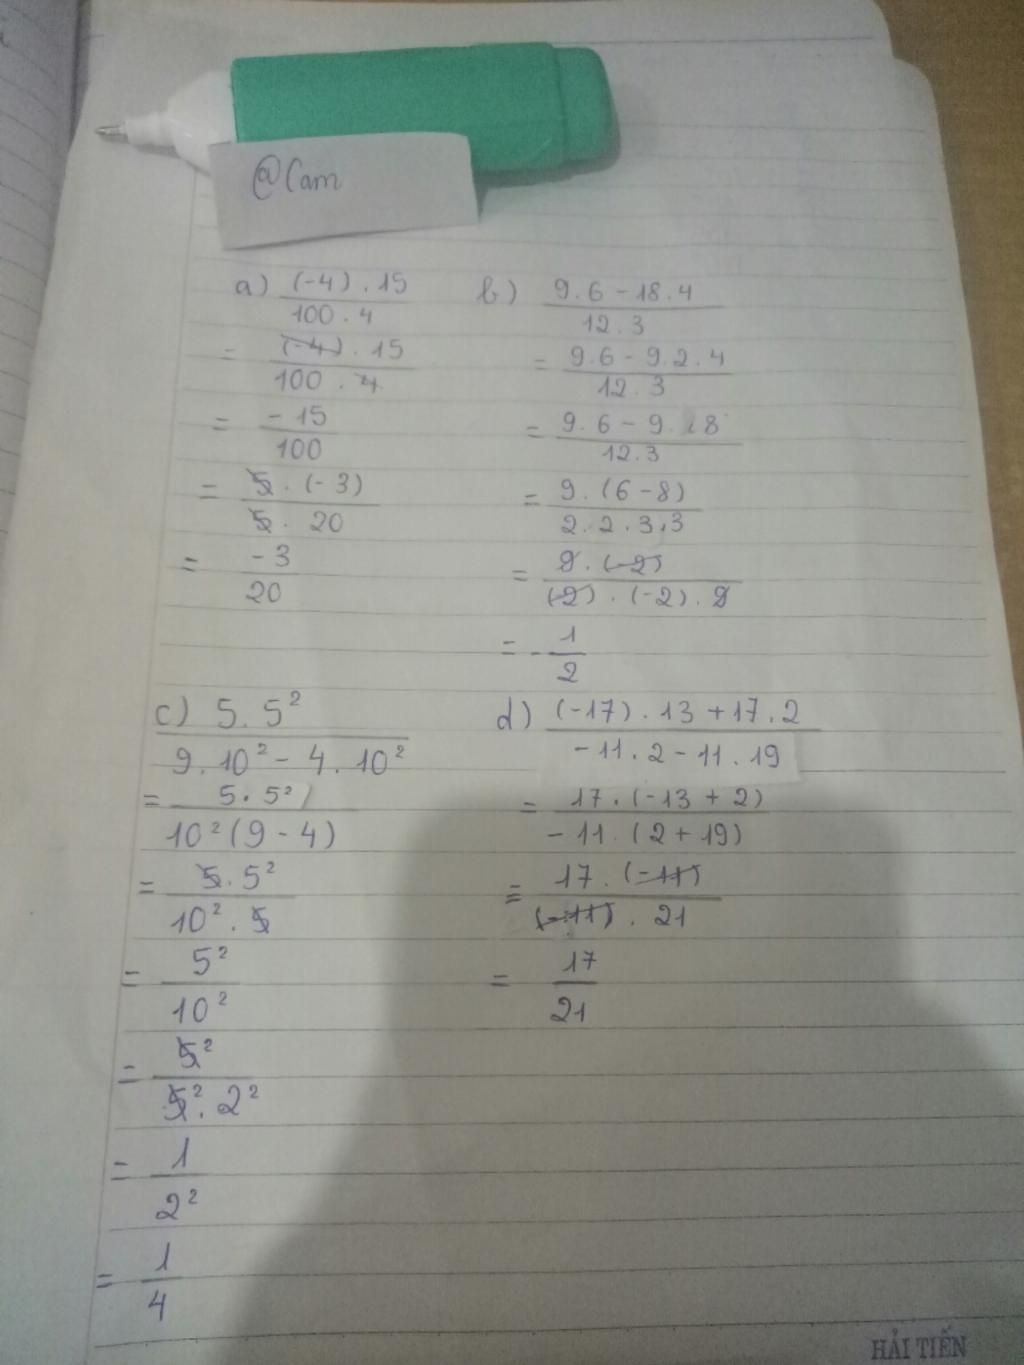 @Cam
a) (-4) . 15 / 100 . 4
= (-4) . 15 / 100 . 4
= - 15 / 100
= 5 . (- 3) / 5 . 20
= - 3 / 20
b) 9.6 - 18.4 / 12.3
= 9.6 - 9.2.4 / 12.3
= 9.6 - 9.8 / 12.3
= 9.(6-8) / 2.2.3.3
= 9.(-2) / (-2).(-2).9
= - 1 / 2
c) 5.5² / 9.10² - 4.10²
= 5.5² / 10²(9-4)
= 5.5² / 10².5
= 5² / 10²
= 5² / 5².2²
= 1 / 2²
= 1 / 4
d) (-17).13 + 17.2 / -11.2 - 11.19
= 17.(-13 + 2) / -11.(2 + 19)
= 17.(-11) / (-11).21
= 17 / 21
HẢI TIẾN